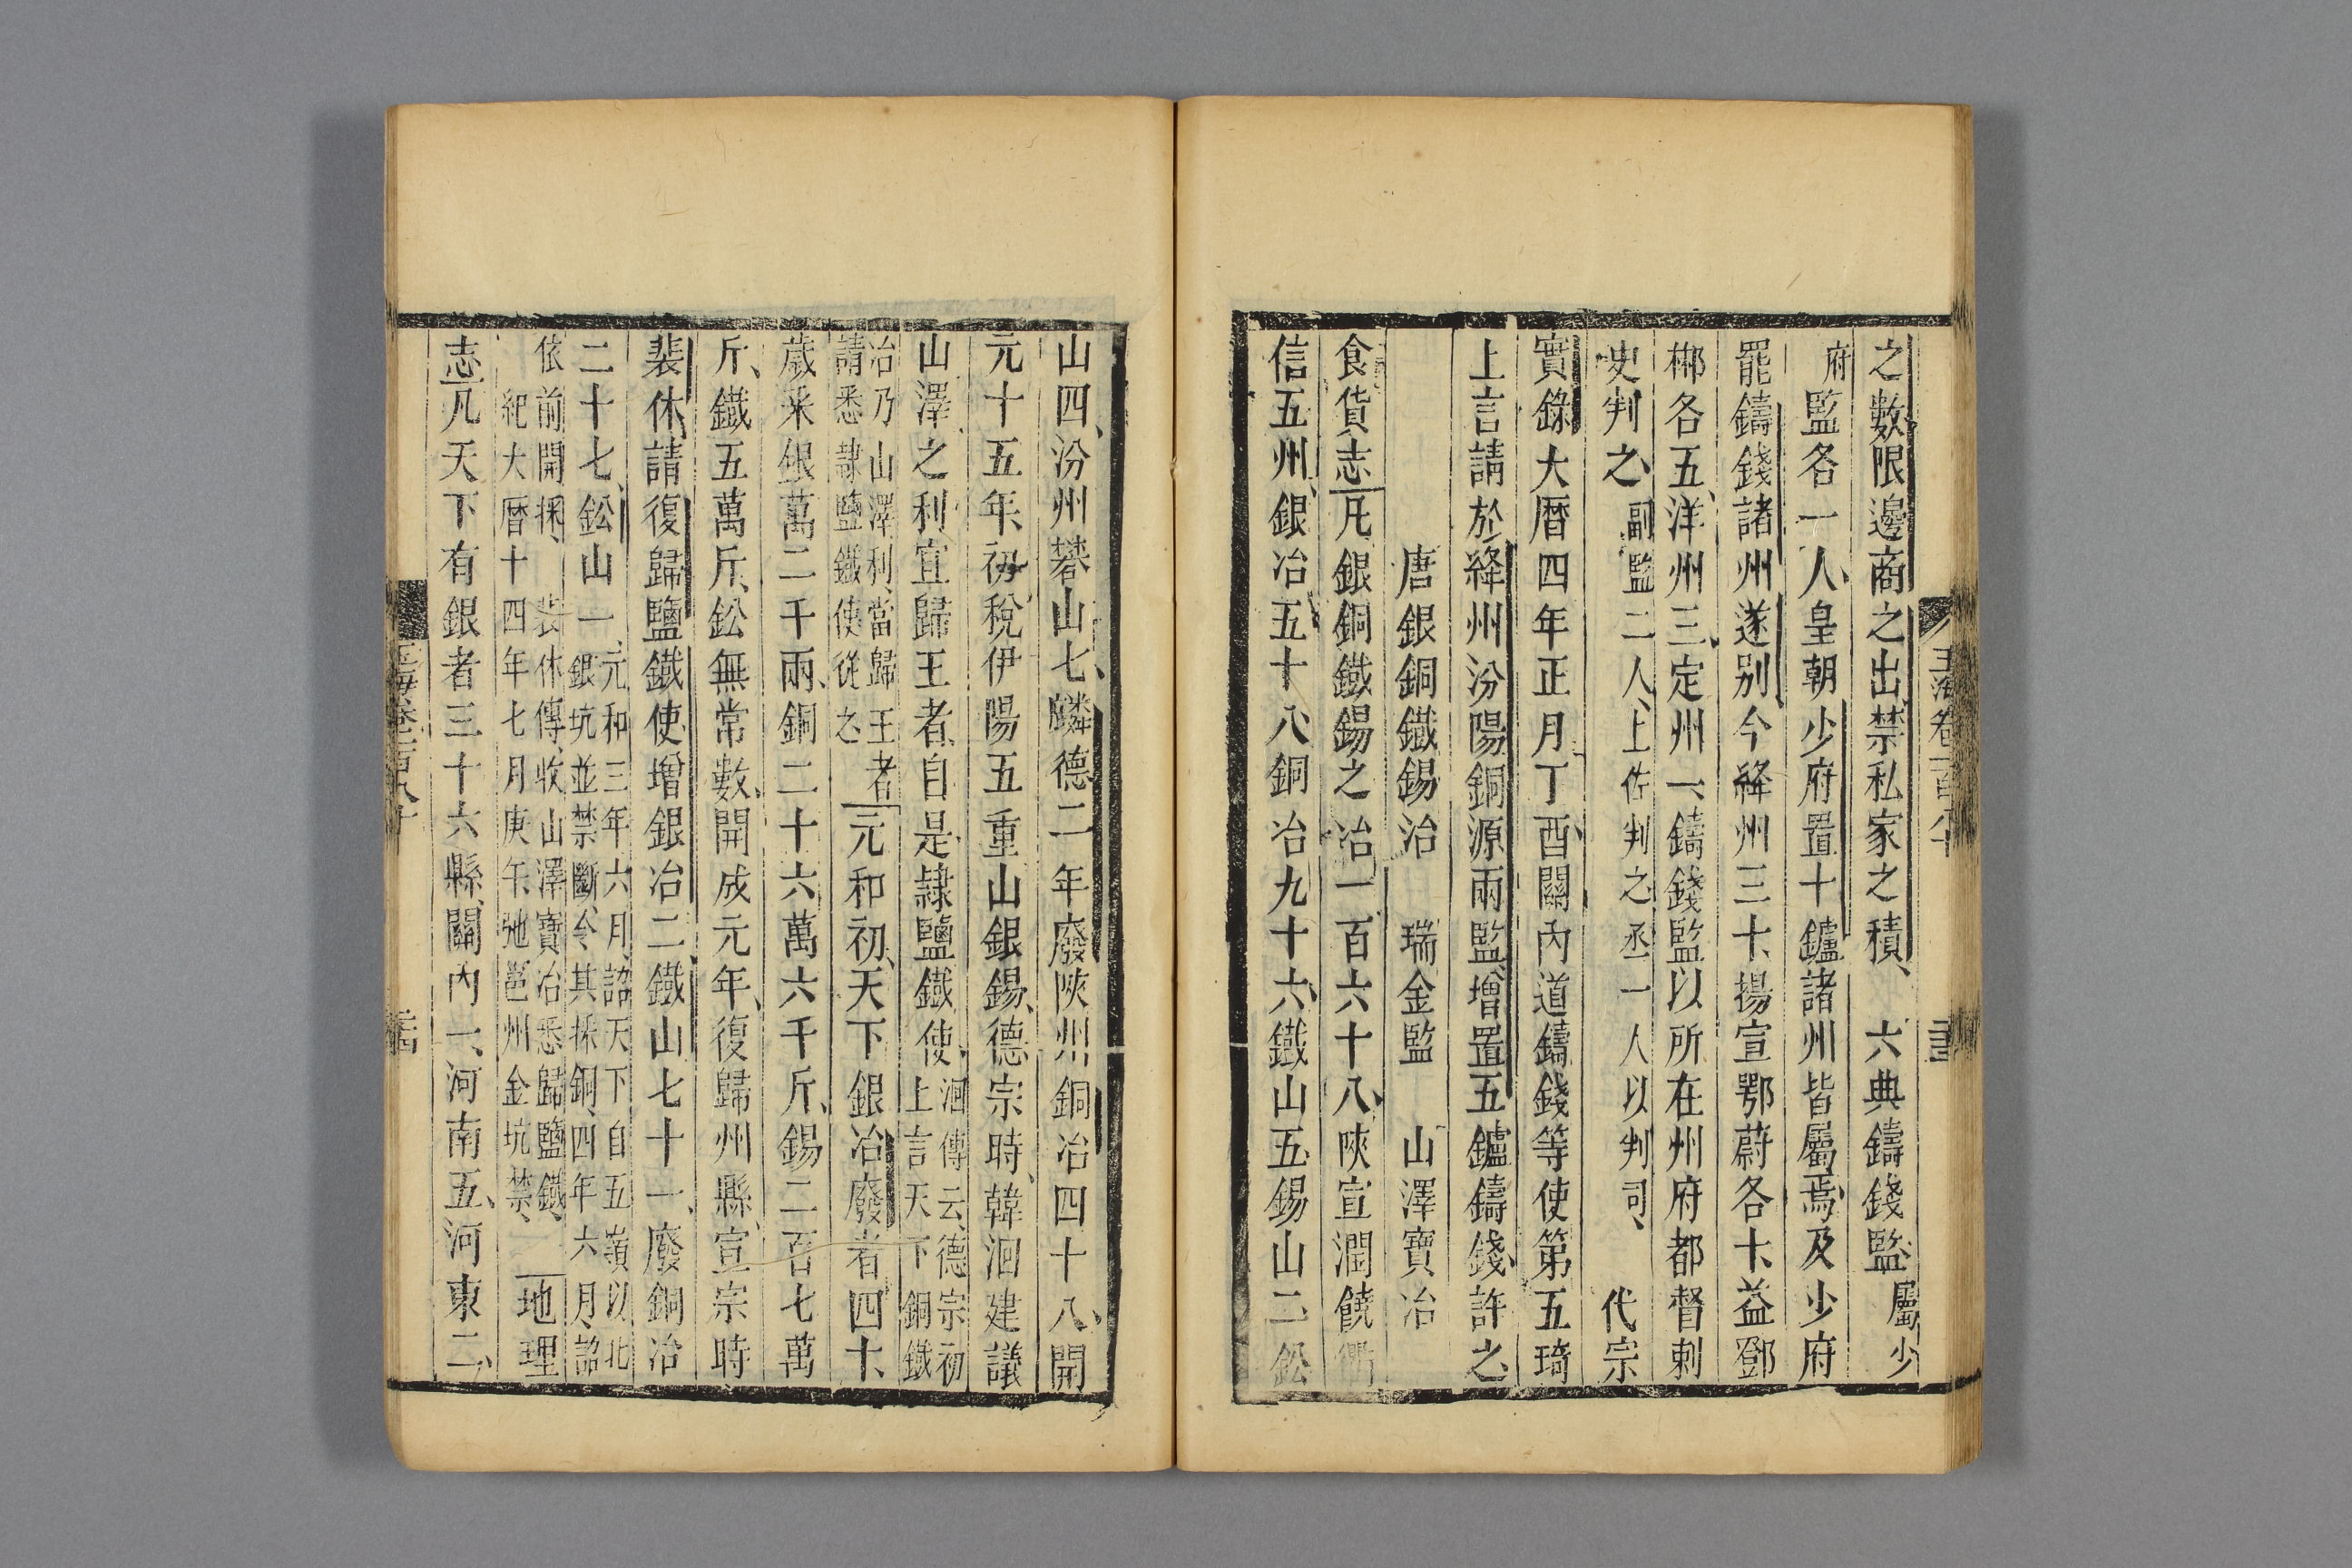 玉海卷一百八十
之數限邊商之出禁私家之積、六典鑄錢監屬少
府監各一人皇朝少府置十鑪諸州皆屬焉及少府
罷鑄錢諸州遂别今絳州三十揚宣鄂蔚各十益鄧
郴各五洋州三定州一鑄錢監以所在州府都督刺
史判之副監二人上佐判之丞一人以判司、代宗
實錄大曆四年正月丁酉關内道鑄錢等使第五琦
上言請於絳州汾陽銅源兩監增置五鑪鑄錢許之
唐銀銅鐵錫冶 瑞金監 山澤寶冶
食貨志凡銀銅鐵錫之冶一百六十八陝宣潤饒衢
信五州銀冶五十八銅冶九十六鐵山五錫山二鈆
山四、汾州礬山七、麟德二年廢陝州銅冶四十八、開
元十五年、初稅伊陽五重山銀錫、德宗時、韓洄建議
山澤之利宜歸王者自是隷鹽鐵使洄傳云、德宗初
上言天下銅鐵
冶乃山澤利、當歸王者
請悉隷鹽鐵使從之元和初、天下銀冶廢者四十、
歲采銀萬二千兩、銅二十六萬六千斤、錫二百七萬
斤、鐵五萬斤、鈆無常數、開成元年、復歸州縣、宣宗時
裴休請復歸鹽鐵使增銀冶二、鐵山七十一、廢銅冶
二十七、鈆山一、元和三年六月、詔天下自五嶺以北
銀坑並禁斷、令其採銅、四年六月、詔
依前開採、裴休傳、收山澤寶冶悉歸鹽鐵、
紀大曆十四年七月庚午、弛邕州金坑禁、地理
志凡天下有銀者三十六縣、關内一、河南五、河東二、
玉海卷一百八十